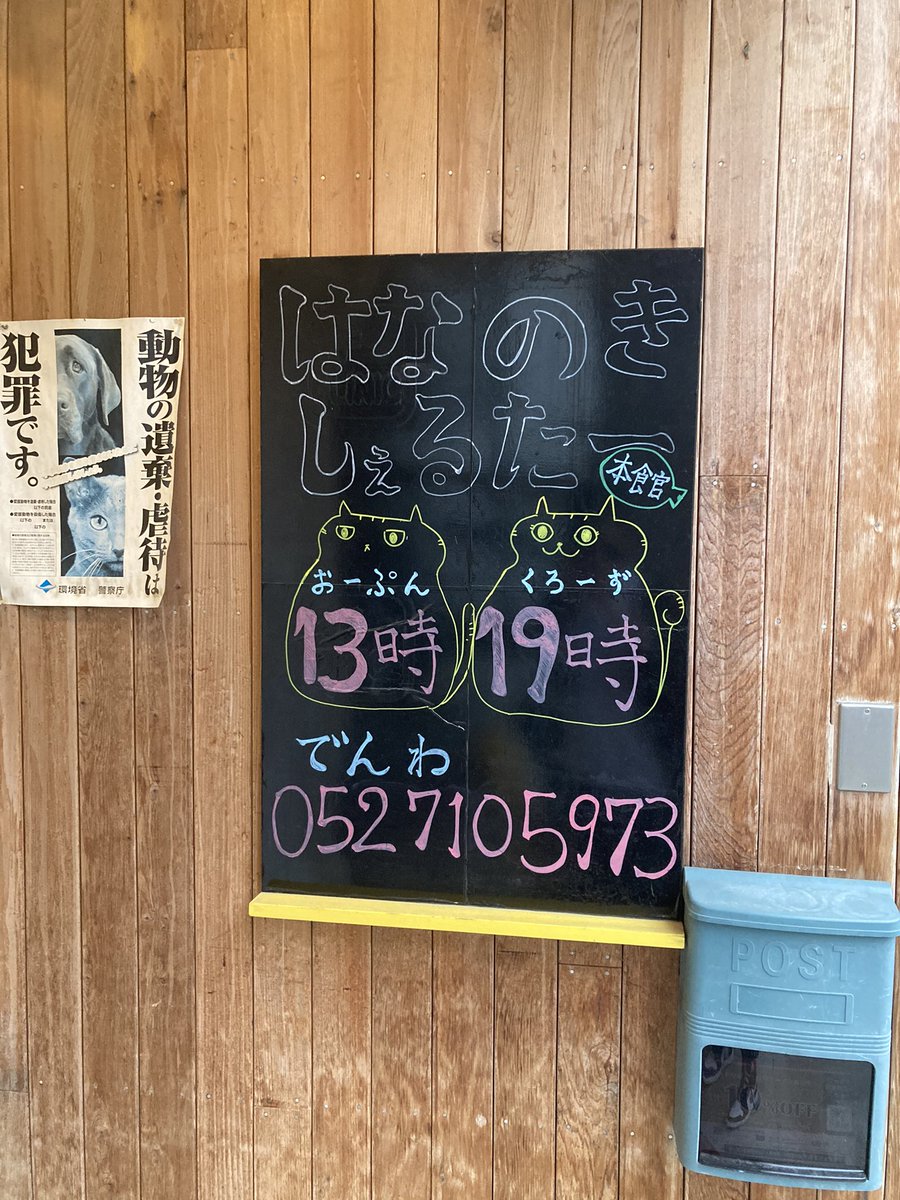 はなのき
しぇるたー
本食官
おーぷん
13時
くろーず
19時
でんわ
0527105973
動物の遺棄・虐待は
犯罪です。
環境省 警察庁
POST